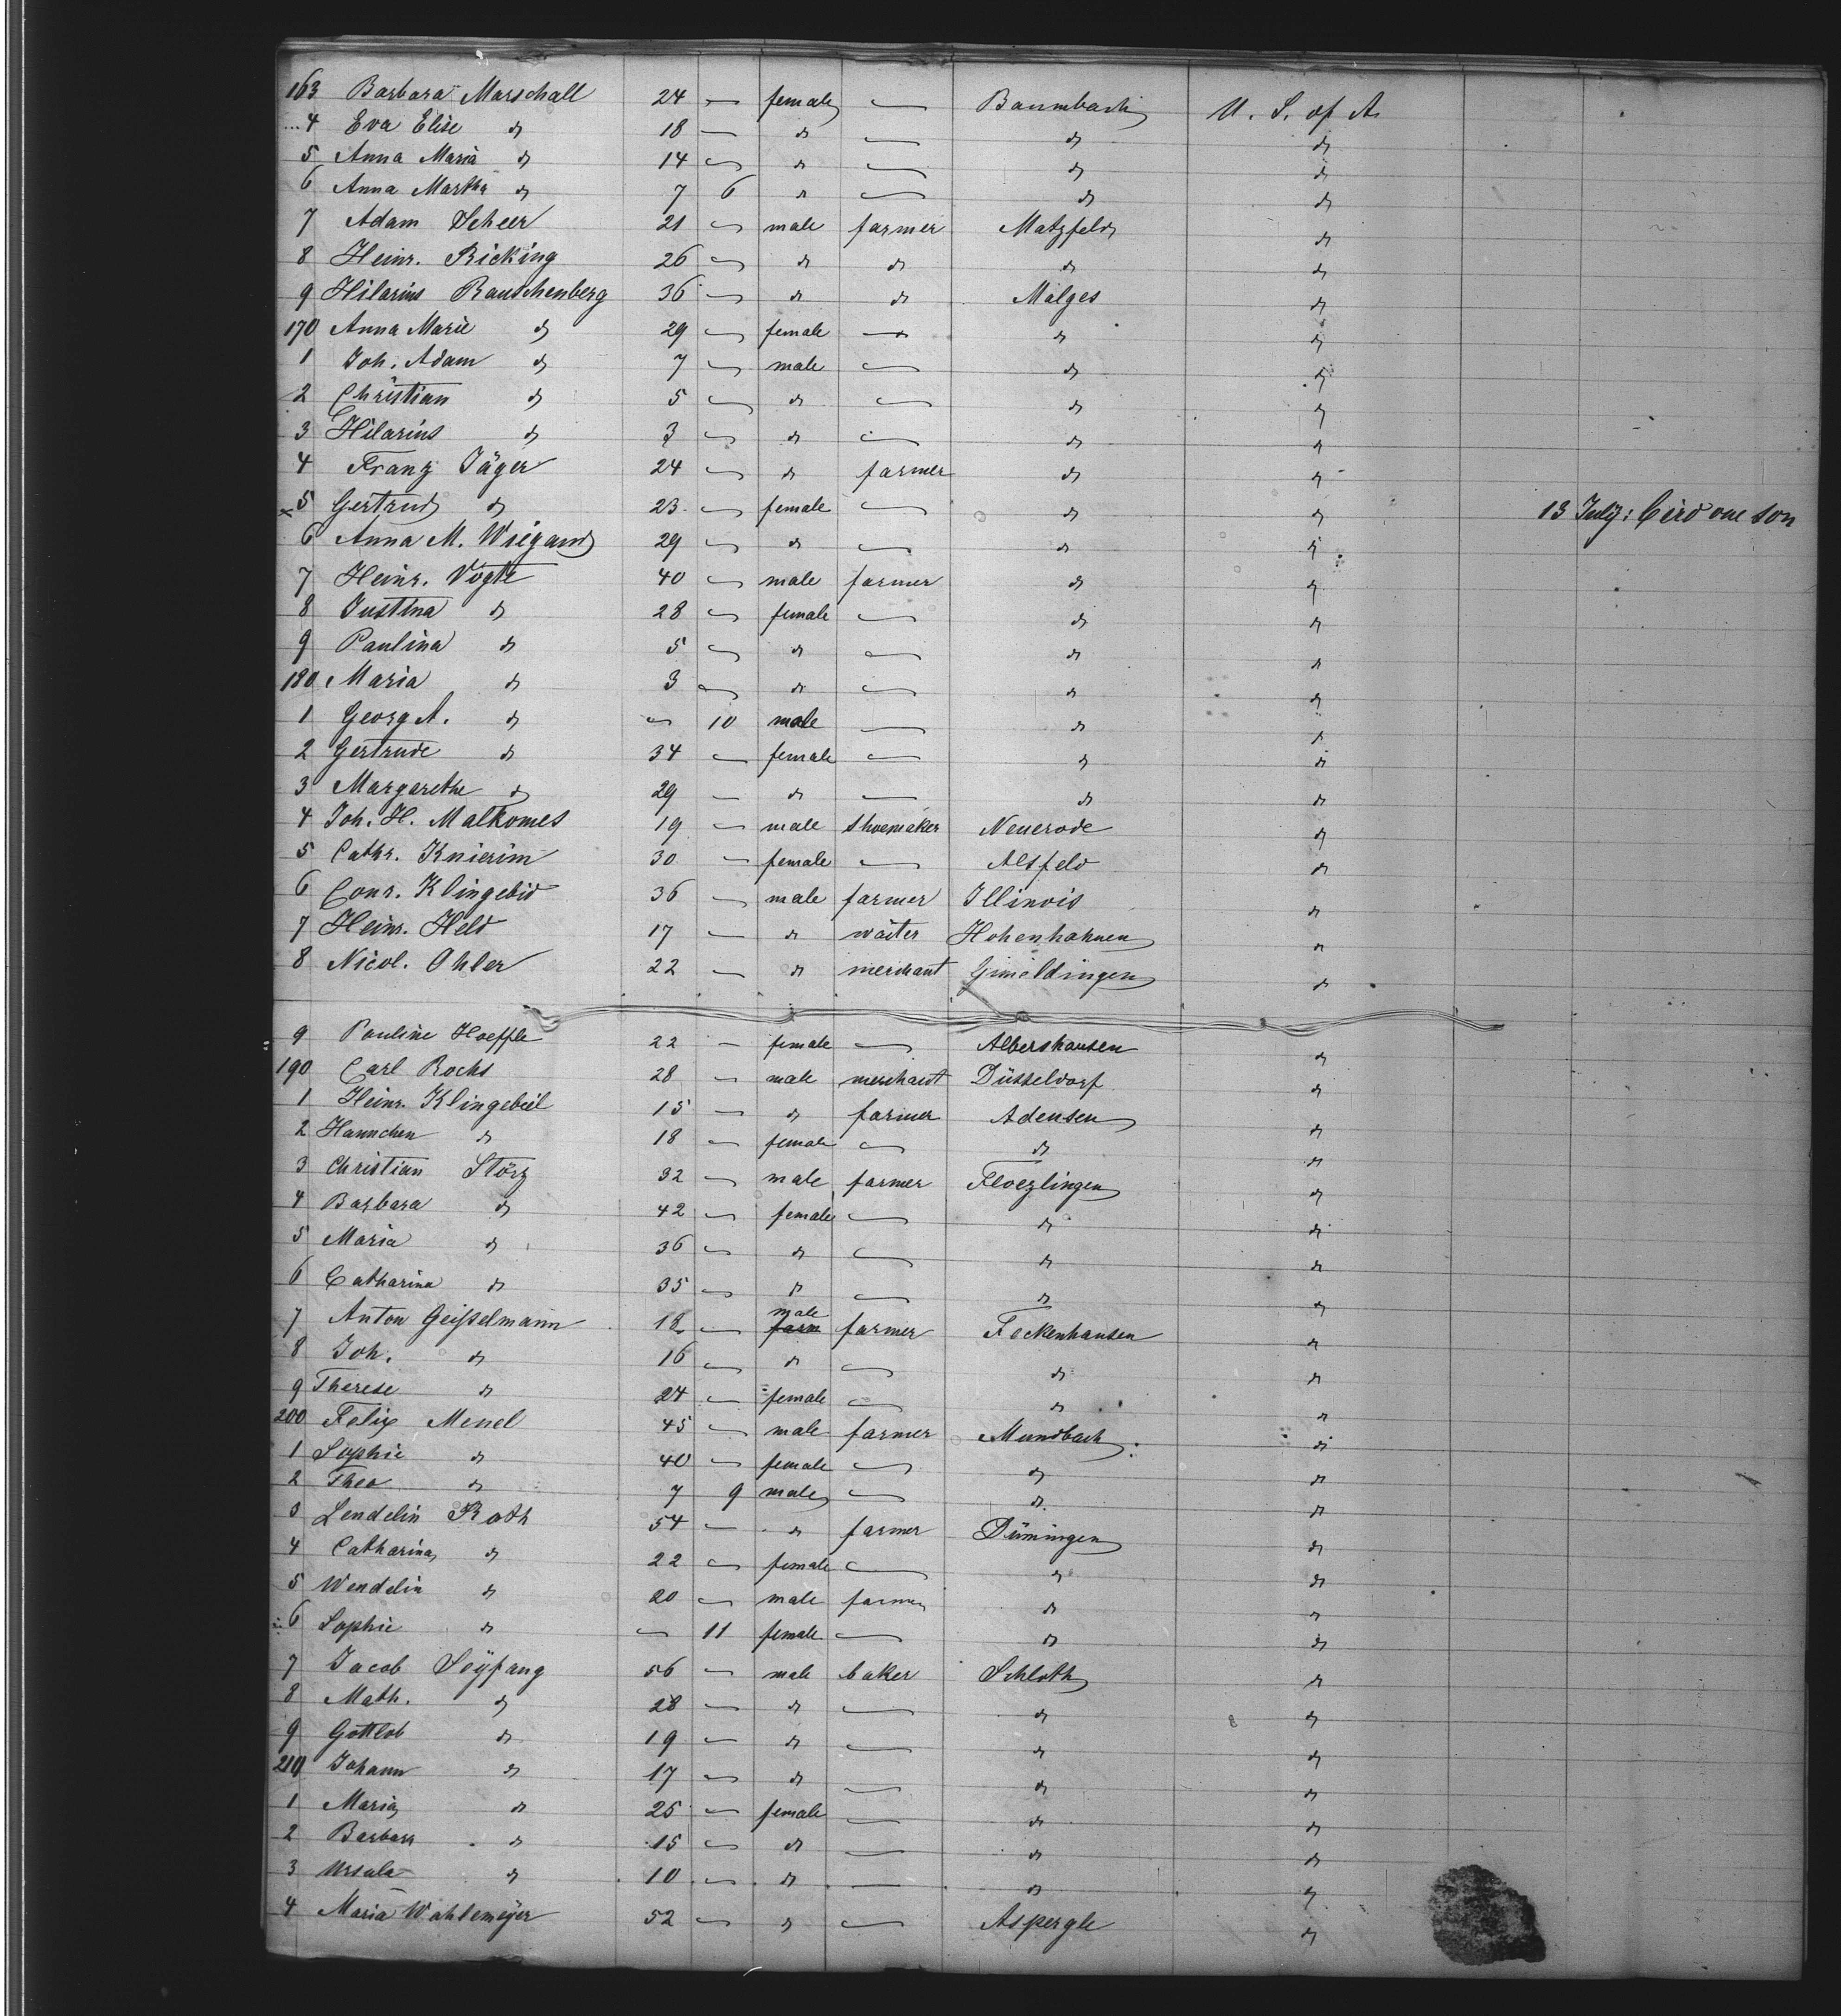 163 Barbara Marschall 24 — female — Baumbach U. S. of A.
4 Eva Elise do 18 — do — do do
5 Anna Maria do 14 — do — do do
6 Anna Martha do 7 6 do — do do
7 Adam Scheer 21 — male farmer Matzfeld do
8 Heinr. Ricking 26 — do do do do
9 Hilarius Rauschenberg 36 — do do Malges do
170 Anna Marie do 29 — female — do do
1 Joh. Adam do 7 — male — do do
2 Christian do 5 — do — do do
3 Hilarius do 3 — do — do do
4 Franz Jäger 24 — do farmer do do
x5 Gertrud do 23 — female — do do 13 July: one son
6 Anna M. Wiegand 29 — do — do do
7 Heinr. Vogte 40 — male farmer do do
8 Justina do 28 — female — do do
9 Paulina do 5 — do — do do
180 Maria do 3 — do — do do
1 Georg A. do — 10 male — do do
2 Gertrude do 34 — female — do do
3 Margarethe do 29 — do — do do
4 Joh. H. Malkomes 19 — male shoemaker Neuerode do
5 Cathr. Knierim 30 — female — Alsfeld do
6 Conr. Klingebid 36 — male farmer Illinois do
7 Heinr. Held 17 — do waiter Hohenhahnen do
8 Nicol. Ohler 22 — do merchant Gimeldingen do
9 Pauline Hoeffle 22 — female — Albershausen do
190 Carl Rochs 28 — male merchant Düsseldorf do
1 Heinr. Klingebiel 15 — do farmer Adensen do
2 Hannchen do 18 — female — do do
3 Christian Störz 32 — male farmer Floezlingen do
4 Barbara do 42 — female — do do
5 Maria do 36 — do — do do
6 Catharina do 35 — do — do do
7 Anton Geißelmann 18 — male farmer Fockenhausen do
8 Joh. do 16 — do — do do
9 Therese do 24 — female — do do
200 Felix Menel 45 — male farmer Mundbach do
1 Sophie do 40 — female — do do
2 Theo do 7 9 male — do do
3 Lendelin Roth 54 — do farmer Dünningen do
4 Catharina do 22 — female — do do
5 Wendelin do 20 — male farmer do do
6 Sophie do — 11 female — do do
7 Jacob Seÿfang 56 — male baker Schloth do
8 Math. do 28 — do — do do
9 Gottlob do 19 — do — do do
210 Johann do 17 — do — do do
1 Maria do 25 — female — do do
2 Barbara do 15 — do — do do
3 Ursula do 10 — do — do do
4 Maria Wahlemeÿer 52 — do — Aspergle do